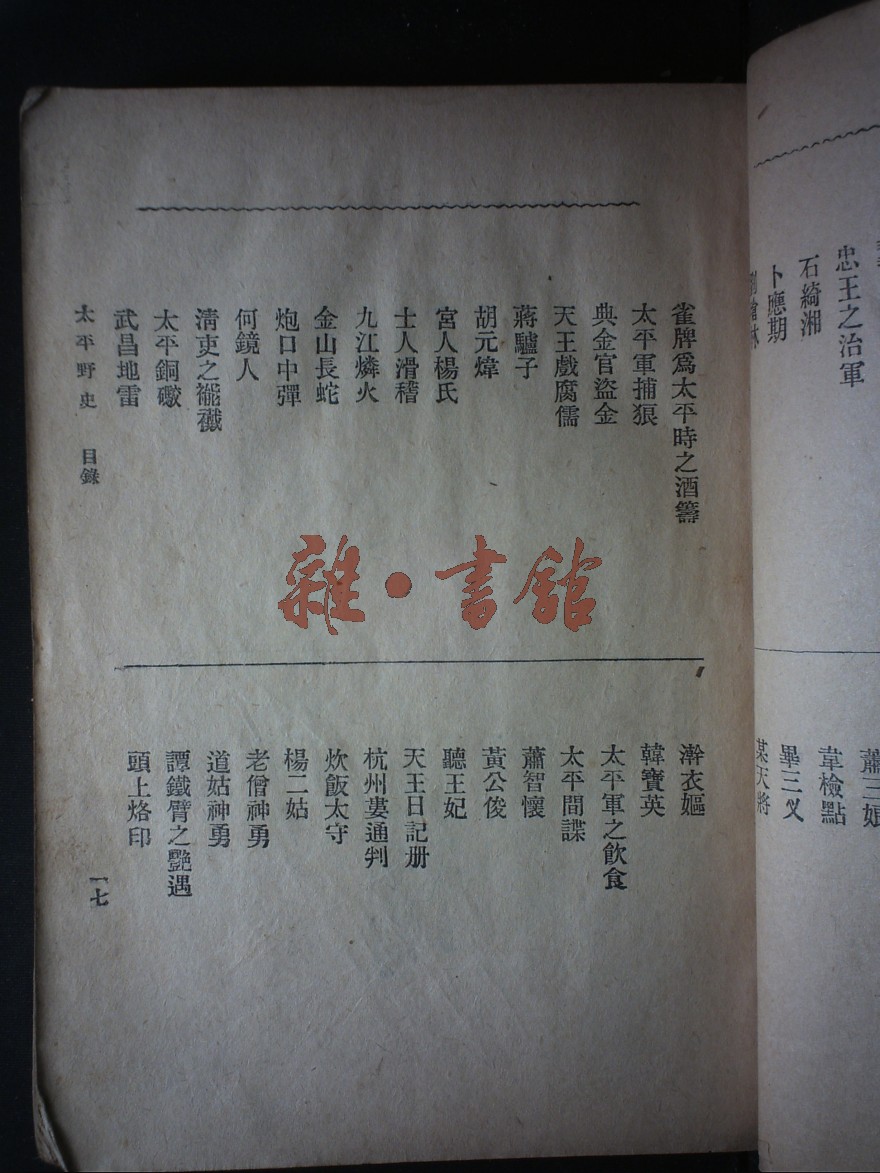 忠王之治軍
石綺湘
卜應期
蕭三娘
韋檢點
畢三叉
某天將
雀牌爲太平時之酒籌
太平軍捕狼
典金官盜金
天王戲腐儒
蔣驢子
胡元煒
宮人楊氏
士人滑稽
九江燐火
金山長蛇
炮口中彈
何鏡人
淸吏之褦襶
太平銅礮
武昌地雷
澣衣嫗
韓寶英
太平軍之飮食
太平間諜
蕭智懷
黃公俊
聽王妃
天王日記册
杭州婁通判
炊飯太守
楊二姑
老僧神勇
道姑神勇
譚鐵臂之艷遇
頭上烙印
太平野史 目錄 一七
雜·書館